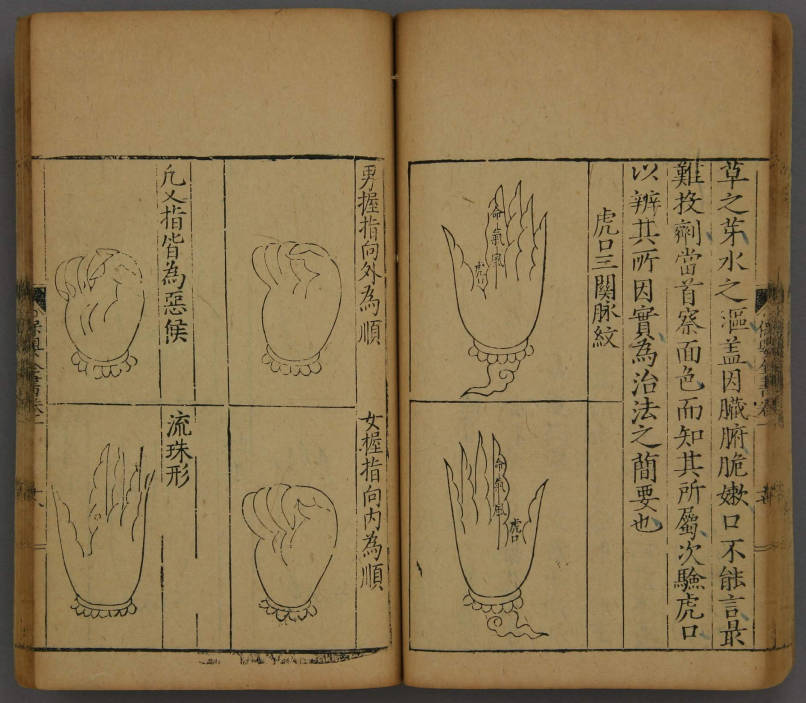 草之芽水之漚蓋因臟腑脆嫩口不能言最
難投劑當首察面色而知其所屬次驗虎口
以辨其所因實為治法之簡要也
虎口三關脉紋
命氣風
虎口
命氣風
虎口
男握指向外為順
女握指向內為順
凢叉指皆為惡候
流珠形
保嬰全書卷一